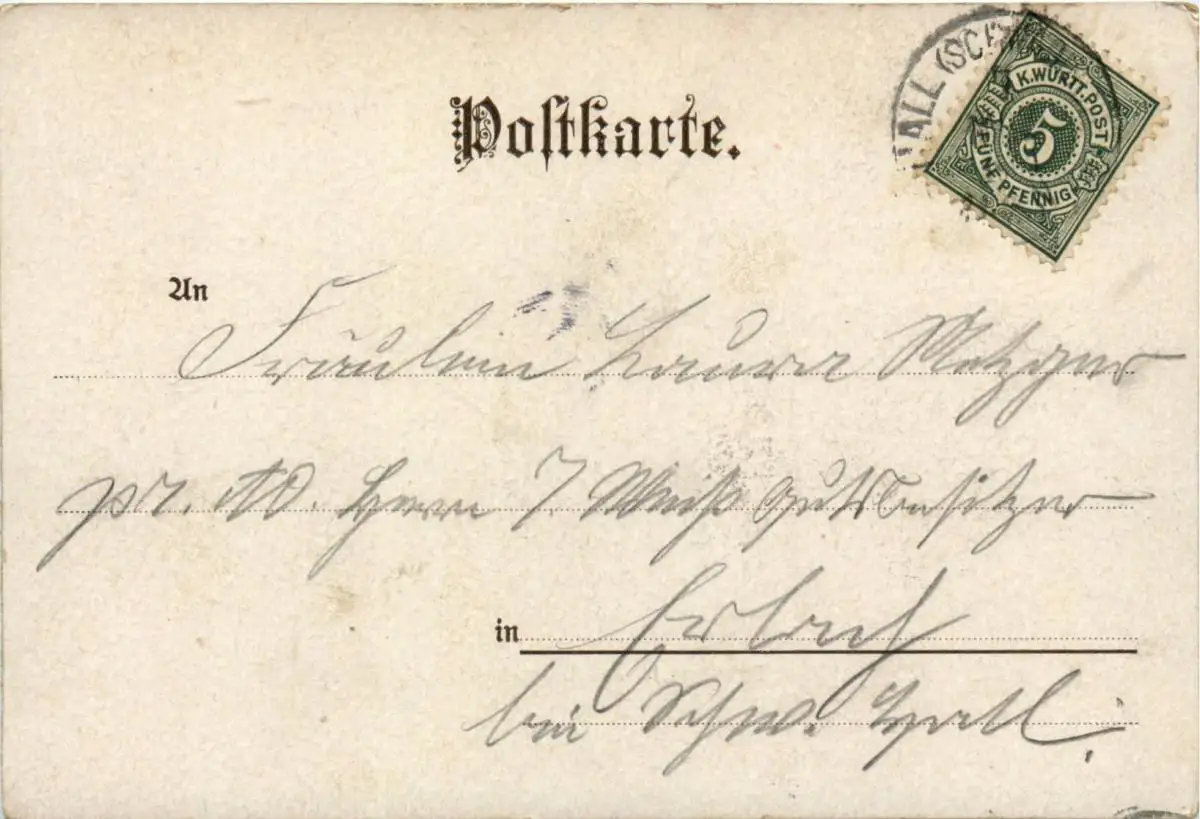 Postkarte.
HALL (SCH
K. WÜRTT. POST
5
FÜNF PFENNIG
An Fräulein Laura Metzger
pr. Ad. Herrn J. Weiß Gutsbesitzer
in Erlach
bei Schw. Hall.